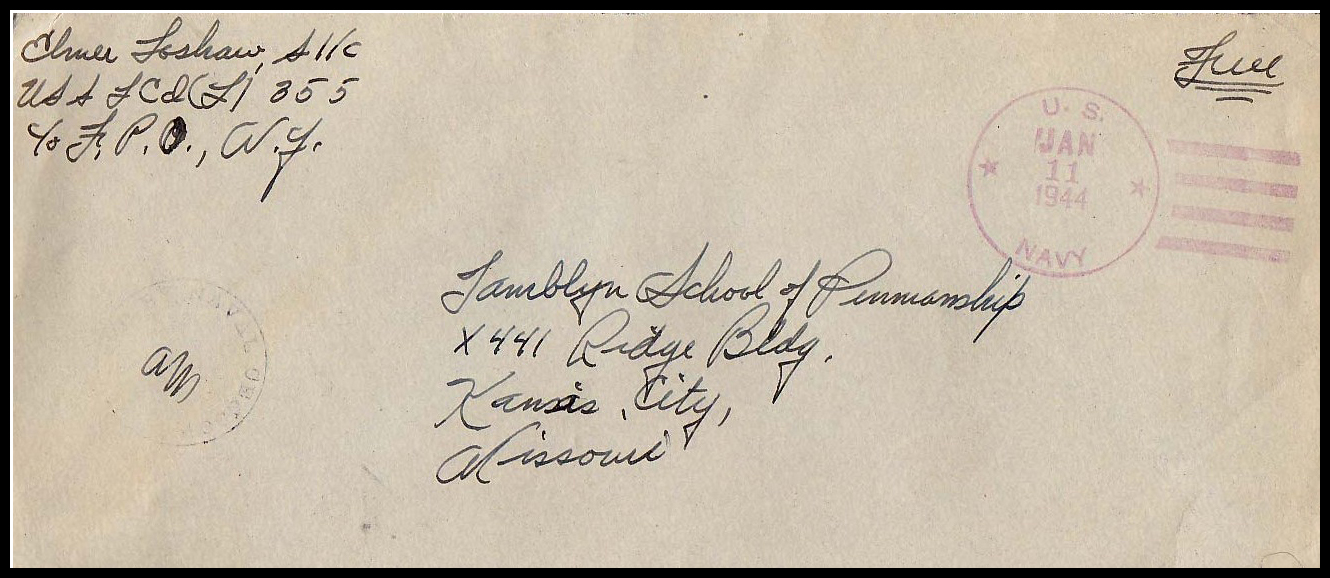 Elmer Loshaw, S1/c
USS LCI(L) 355
c/o F.P.O., N.Y.
Free
U.S.
JAN
11
1944
NAVY
Tamblyn School of Penmanship
441 Ridge Bldg.
Kansas City,
Missouri
NAVAL